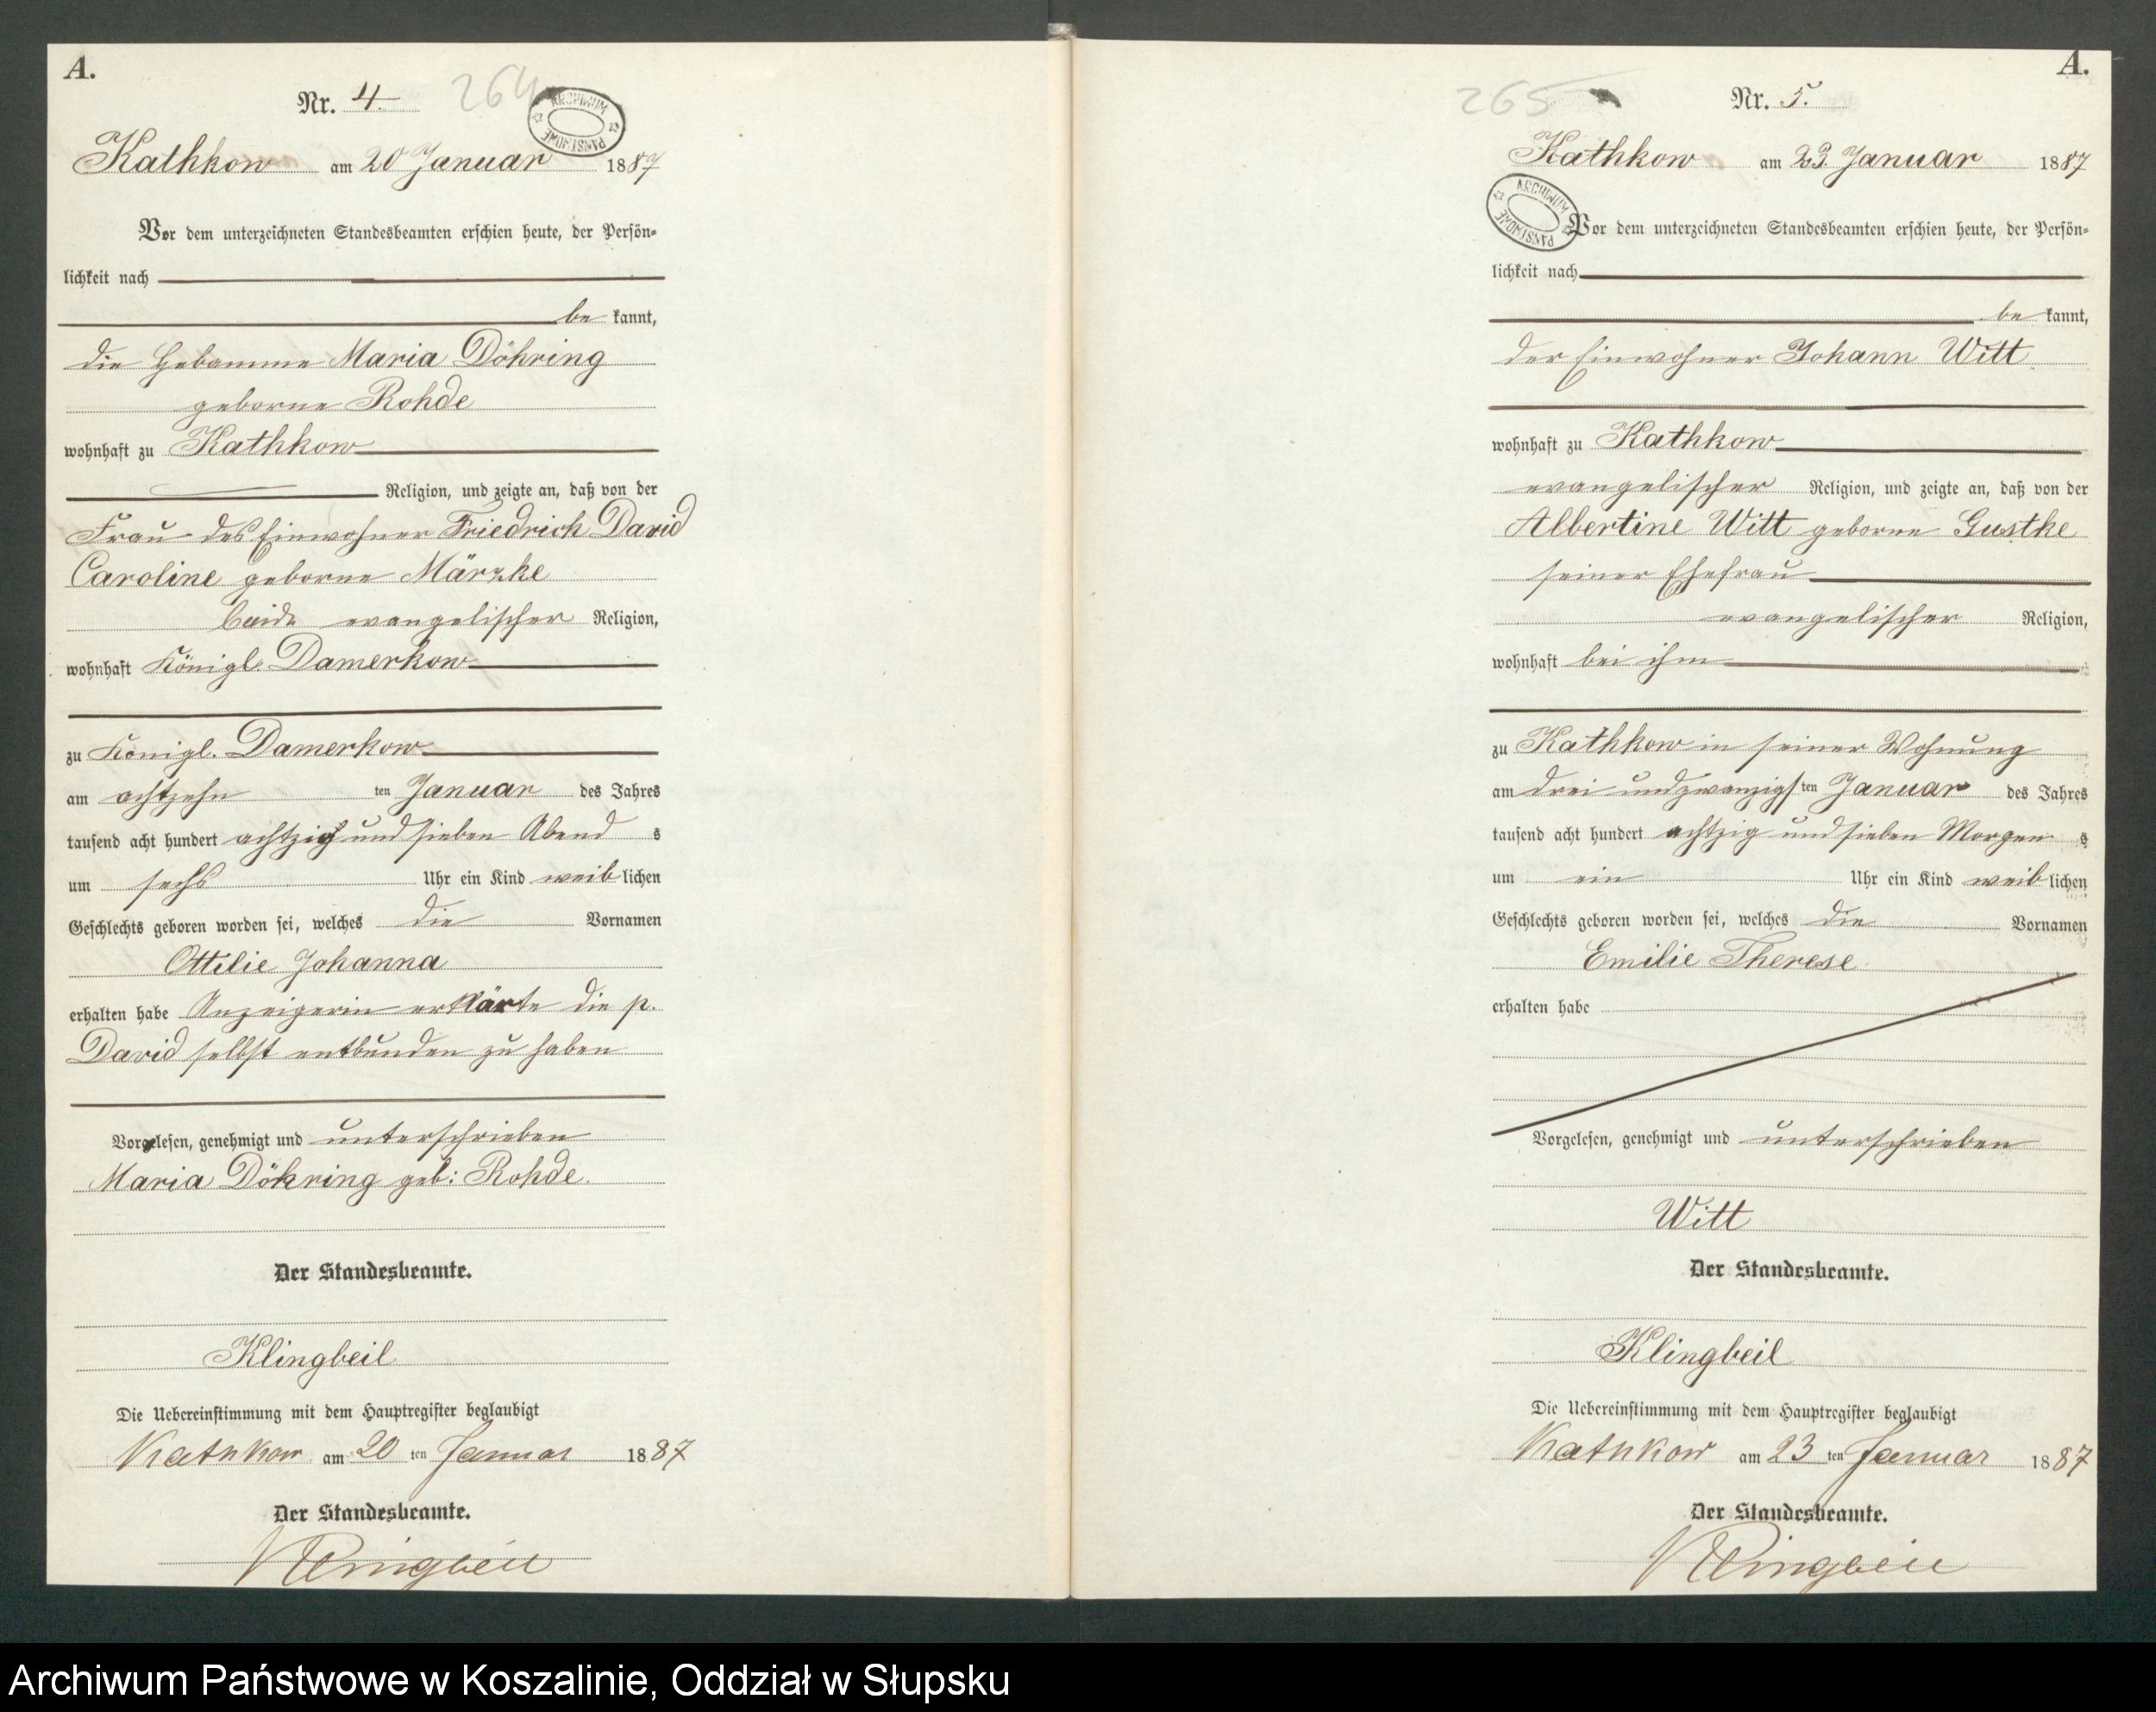 A.
Nr. 4.
264
ARCHIWUM PAŃSTWOWE
Kathkow am 20 Januar 1887
Vor dem unterzeichneten Standesbeamten erschien heute, der Persön-
lichkeit nach
be kannt,
die Hebamme Maria Döhring
geborne Rohde
wohnhaft zu Kathkow
Religion, und zeigte an, daß von der
Frau des Einwohner Friedrich David
Caroline geborne Märzke
beide evangelischer Religion,
wohnhaft Königl. Damerkow
zu Königl. Damerkow
am achtzehn ten Januar des Jahres
tausend acht hundert achtzig und sieben Abend s
um sechs Uhr ein Kind weib lichen
Geschlechts geboren worden sei, welches die Vornamen
Ottilie Johanna
erhalten habe Anzeigerin erklärte die p.
David selbst entbunden zu haben
Vorgelesen, genehmigt und unterschrieben
Maria Döhring geb: Rohde.
Der Standesbeamte.
Klingbeil
Die Uebereinstimmung mit dem Hauptregister beglaubigt
Kathkow am 20 ten Januar 1887
Der Standesbeamte.
Klingbeil
A.
265
Nr. 5.
Kathkow am 23. Januar 1887
ARCHIWUM PAŃSTWOWE
Vor dem unterzeichneten Standesbeamten erschien heute, der Persön-
lichkeit nach
be kannt,
der Einwohner Johann Witt
wohnhaft zu Kathkow
evangelischer Religion, und zeigte an, daß von der
Albertine Witt geborne Gustke
seiner Ehefrau
evangelischer Religion,
wohnhaft bei ihm
zu Kathkow in seiner Wohnung
am drei und zwanzigs ten Januar des Jahres
tausend acht hundert achtzig und sieben Morgen s
um ein Uhr ein Kind weib lichen
Geschlechts geboren worden sei, welches die Vornamen
Emilie Therese
erhalten habe
Vorgelesen, genehmigt und unterschrieben
Witt
Der Standesbeamte.
Klingbeil
Die Uebereinstimmung mit dem Hauptregister beglaubigt
Kathkow am 23 ten Januar 1887
Der Standesbeamte.
Klingbeil
Archiwum Państwowe w Koszalinie, Oddział w Słupsku